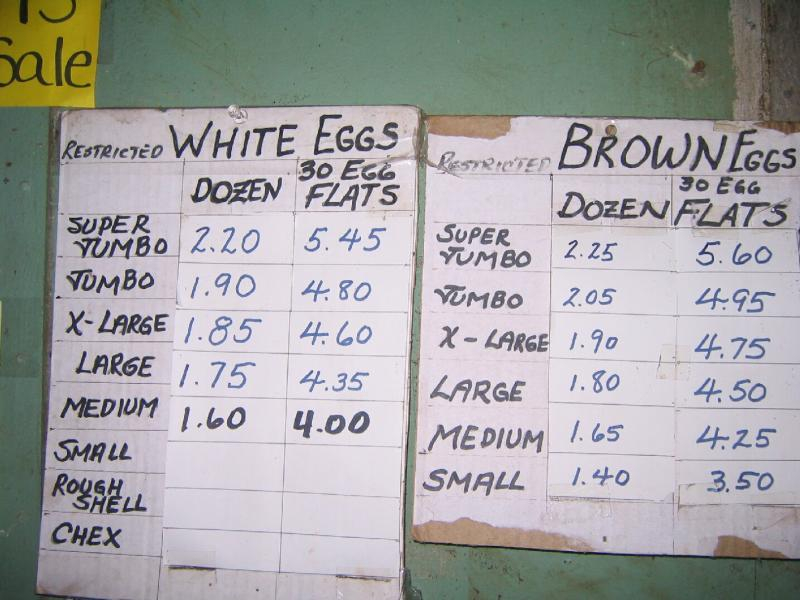 Sale
RESTRICTED WHITE EGGS
DOZEN 30 EGG FLATS
SUPER JUMBO 2.20 5.45
JUMBO 1.90 4.80
X-LARGE 1.85 4.60
LARGE 1.75 4.35
MEDIUM 1.60 4.00
SMALL
ROUGH SHELL
CHEX
RESTRICTED BROWN EGGS
DOZEN 30 EGG FLATS
SUPER JUMBO 2.25 5.60
JUMBO 2.05 4.95
X-LARGE 1.90 4.75
LARGE 1.80 4.50
MEDIUM 1.65 4.25
SMALL 1.40 3.50